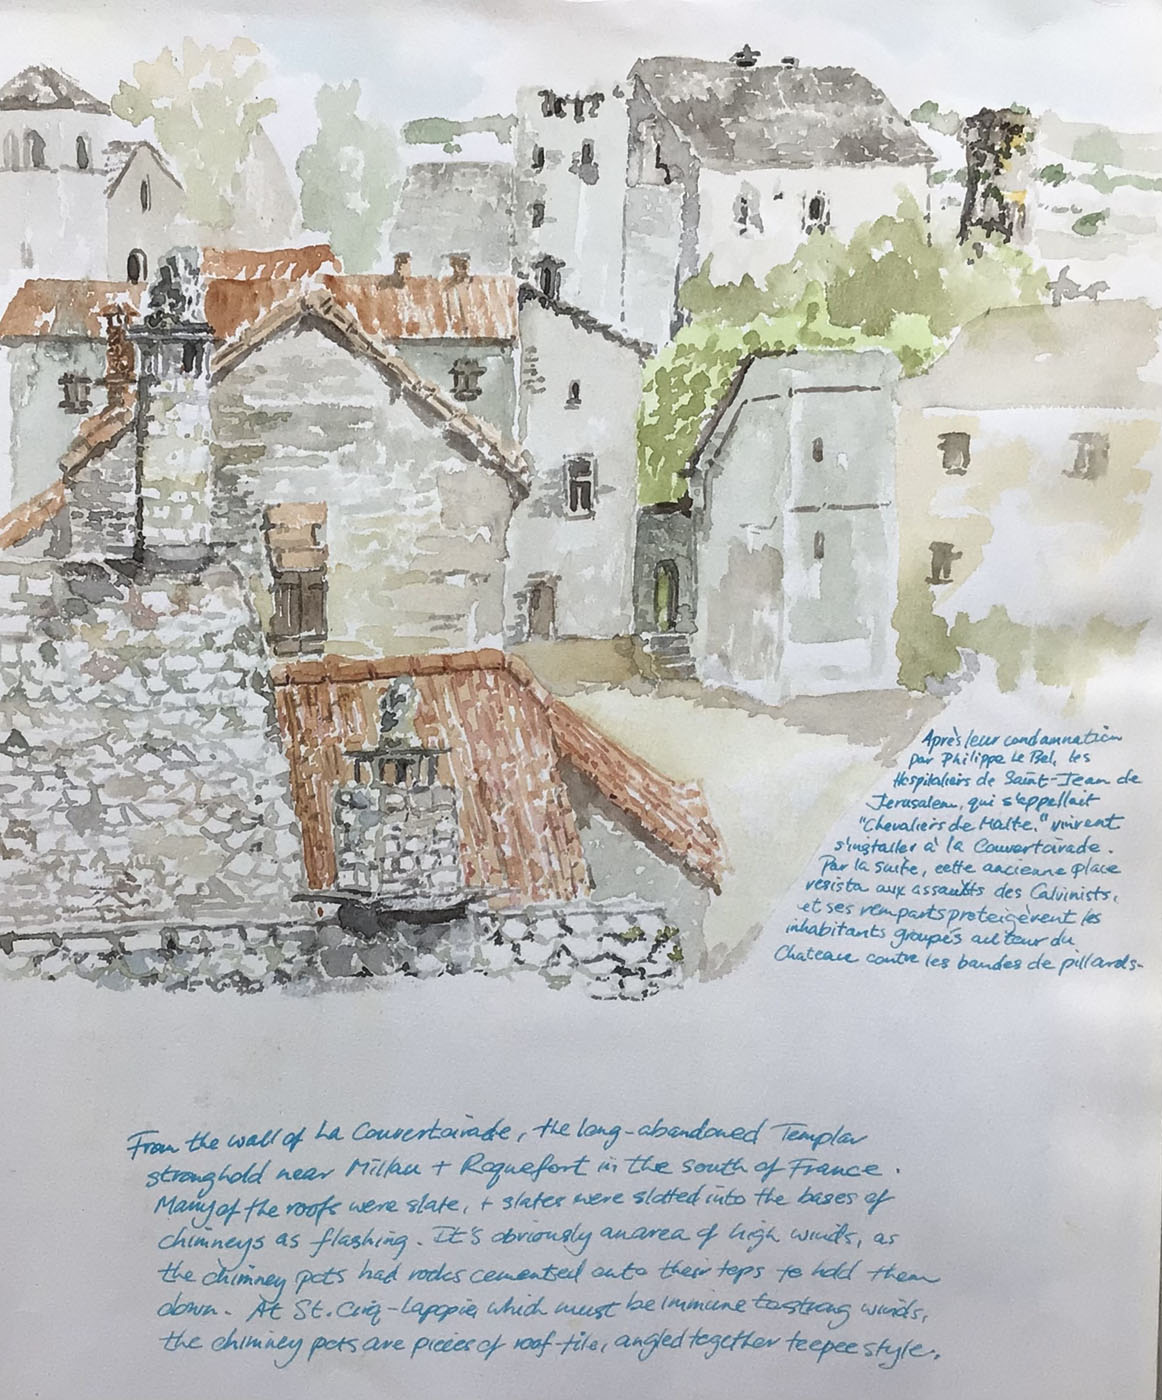 Après leur condamnation
par Philippe Le Bel, les
Hospitaliers de Saint-Jean de
Jerusalem, qui s'appellait
"Chevaliers de Malte." vinrent
s'installer à la Couvertoirade.
Par la suite, cette ancienne place
resista aux assauts des Calvinists,
et ses remparts proteigèrent les
inhabitants groupés autour du
Chateau contre les bandes de pillards-
From the wall of La Couvertoirade, the long-abandoned Templar
stronghold near Millau + Roquefort in the south of France.
Many of the roofs were slate, + slates were slotted into the bases of
chimneys as flashing. It's obviously an area of high winds, as
the chimney pots had rocks cemented onto their tops to hold them
down. At St. Cirq-Lapopie, which must be immune to strong winds,
the chimney pots are pieces of roof-tile, angled together teepee style.